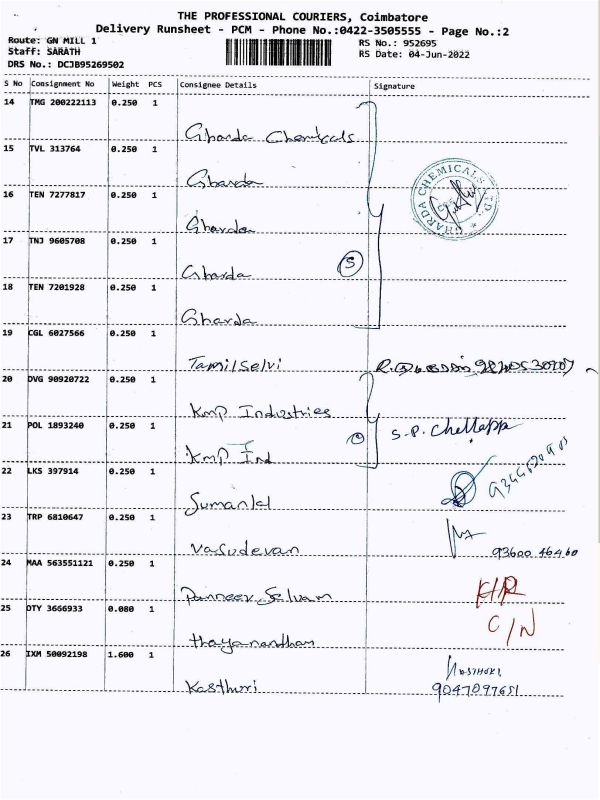 THE PROFESSIONAL COURIERS, Coimbatore
Delivery Runsheet - PCM - Phone No.:0422-3505555 - Page No.:2
Route: GN MILL 1
RS No.: 952695
Staff: SARATH
RS Date: 04-Jun-2022
DRS No.: DCJB95269502
S No Consignment No Weight PCS Consignee Details Signature
14 TMG 200222113 0.250 1
Gharda Chemicals
15 TVL 313764 0.250 1
Gharda
GHARDA CHEMICALS LTD.
16 TEN 7277817 0.250 1
Gharda
17 TNJ 9605708 0.250 1
Gharda
5
18 TEN 7201928 0.250 1
Gharda
19 CGL 6027566 0.250 1
Tamilselvi
20 DVG 90920722 0.250 1
Kmp Industries
21 POL 1893240 0.250 1
S.P. Chellappa
Kmp Ind
22 LKS 397914 0.250 1
Sumanlal
23 TRP 6810647 0.250 1
Vasudevan 93600 46460
24 MAA 563551121 0.250 1
Panneer Selvam
25 OTY 3666933 0.080 1
C/N
thayanantham
26 IXM 50092198 1.600 1
Kasthuri 9047097651